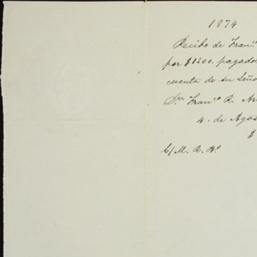 1874
Recibo de Fran.co
por $1200. pagados
cuenta de su Seño
Fran.co R.
4. de Agos
C/M. A. Ho.